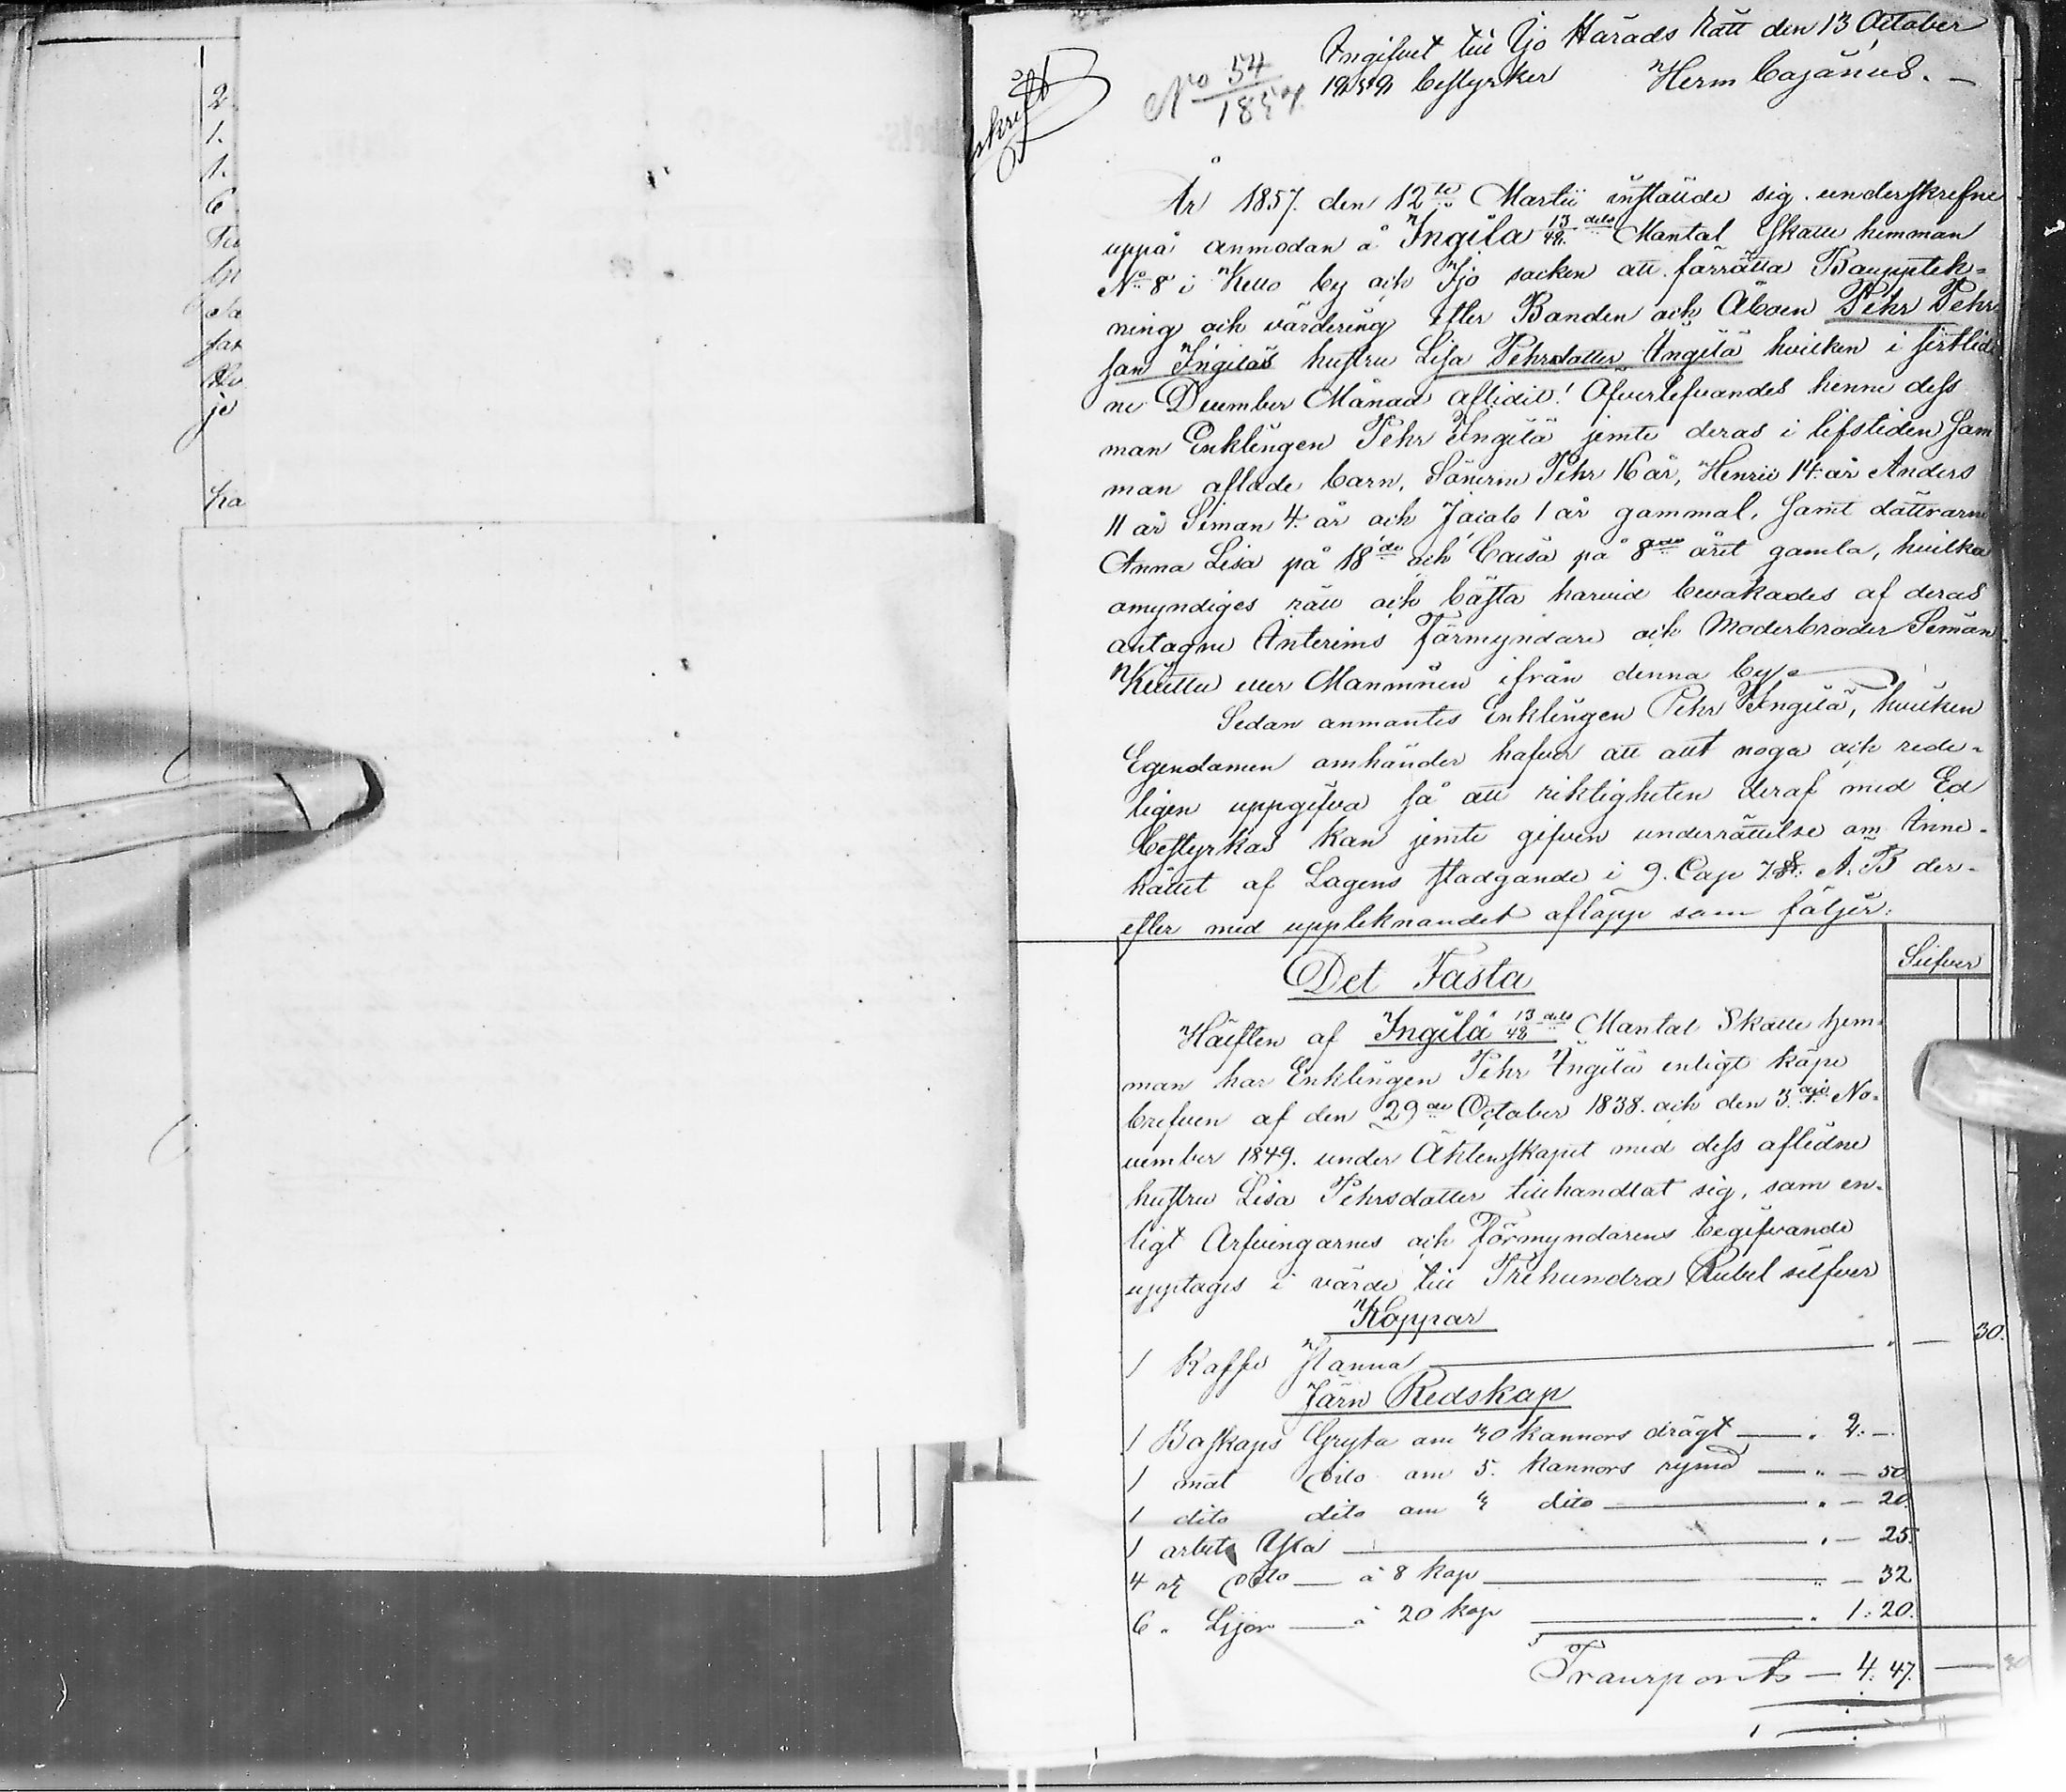 2
1.
1.
6
ha
Ingifvet till Ijo Härads Rätt den 13 October
1857 bestyrker Herm Cajanus.
No 54/1857
År 1857. den 12te Martii instälde sig underskrefne
uppå anmodan å Ingilä 13/48 dels Mantal Skatte hemman
No 8 i Kello by och Ijo socken att förrätta Bouppteck-
ning och värdering efter Bonden och Åboen Pehr Pehrs
son Ingiläs hustru Lisa Pehrsdotter Ingilä hvilken i sistlid
ne December Månad aflidit! Öfverlefvandes henne dess
man Enklingen Pehr Ingilä jemte deras i lifstiden Sam
man aflade barn, Sönerne Pehr 16 år, Henric 14 år Anders
11 år Simon 4 år och Jacob 1 år gammal, Samt döttrarne
Anna Lisa på 18de och Caisa på 8de året gamla, hvilka
omyndiges rätt och bästa härvid bevakades af deras
antagne Interims Förmyndare och Moderbroder Simon
eller Manninen ifrån denna by.
Sedan anmantes Enklingen Pehr Ingilä, hvilken
Egendomen omhänder hafver att allt noga och rede-
ligen uppgifva så att riktigheten deraf med Ed
bestyrkas kan jemte gifven underrättelse om Inne-
hållet af Lagens stadgande i 9. Cap 7. §. Ä. B der-
efter med upptecknandet aflopp som följer:
Silfver
Det Fasta
Hälften af Ingilä 13/48 dels Mantal Skatte hem-
man har Enklingen Pehr Ingilä enligt köpe
brefven af den 29de October 1838. och den 3dje No-
vember 1849. under Äktenskapet med dess aflidne
hustru Lisa Pehrsdotter tillhandlat sig, som en-
ligt Arfvingarnes och Förmyndarens begifvande
upptages i värde till Trehundra Rubel silfver
Koppar
1 Kaffe Panna — " — 30.
Järn Redskap
1 Boskaps Gryta om 40 kannors drägt — " 2. —
1 mat dito om 5. kannors rymd — " — 50
1 dito dito om 4 dito — " — 20.
1 arbets Yxa — " — 25.
4 dito — à 8 kop — " — 32
6 " Lijor — à 20 kop — " 1: 20.
Transport — 4. 47. — 30